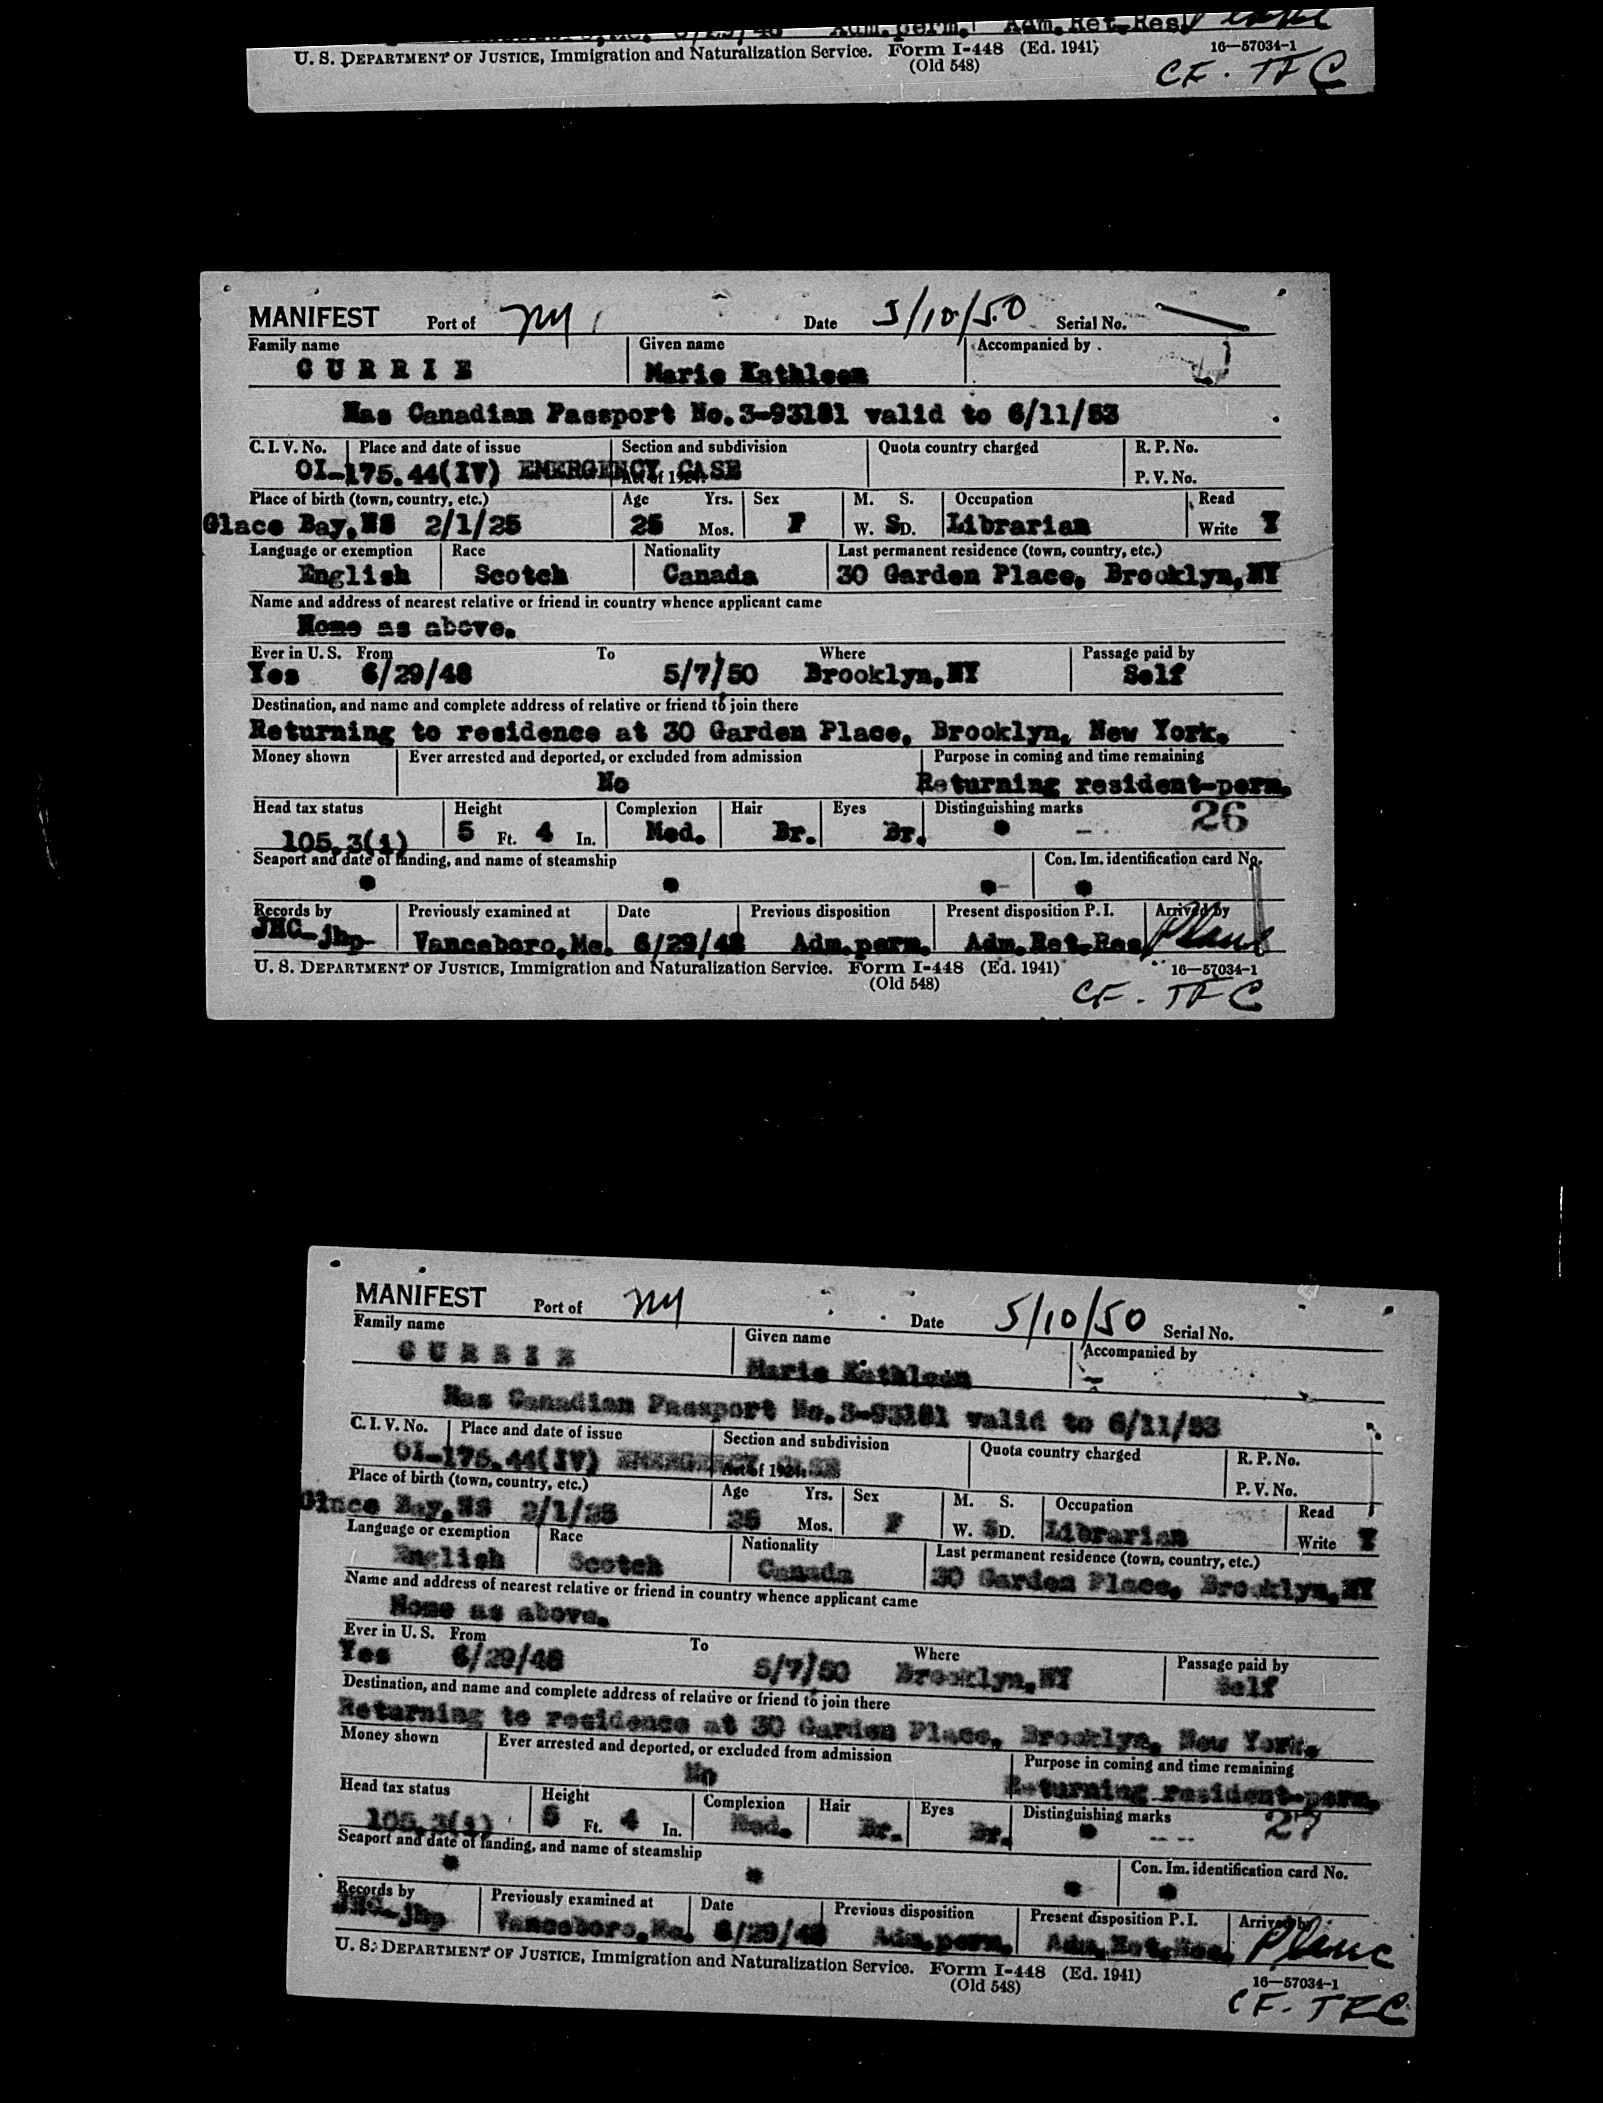 Adm.perm. Adm.Ret.Res. Plane
U. S. DEPARTMENT OF JUSTICE, Immigration and Naturalization Service. Form I-448 (Ed. 1941) 16—57034-1
(Old 548)
CF. TFC
MANIFEST Port of NY Date 5/10/50 Serial No.
Family name Given name Accompanied by
CURRIE Marie Kathleen
Has Canadian Passport No.3-93181 valid to 6/11/53
C. I. V. No. Place and date of issue Section and subdivision Quota country charged R. P. No.
OI-175.44(IV) EMERGENCY CASE Act of 1924. P. V. No.
Place of birth (town, country, etc.) Age Yrs. Sex M. S. Occupation Read
Glace Bay,NS 2/1/25 25 Mos. F W. SD. Librarian Write Y
Language or exemption Race Nationality Last permanent residence (town, country, etc.)
English Scotch Canada 30 Garden Place, Brooklyn,NY
Name and address of nearest relative or friend in country whence applicant came
Home as above.
Ever in U. S. From To Where Passage paid by
Yes 6/29/48 5/7/50 Brooklyn,NY Self
Destination, and name and complete address of relative or friend to join there
Returning to residence at 30 Garden Place, Brooklyn, New York.
Money shown Ever arrested and deported, or excluded from admission Purpose in coming and time remaining
No Returning resident-perm.
Head tax status Height Complexion Hair Eyes Distinguishing marks 26
105.3(i) 5 Ft. 4 In. Med. Br. Br.
Seaport and date of landing, and name of steamship Con. Im. identification card No.
Records by Previously examined at Date Previous disposition Present disposition P. I. Arrived by
JHC-jhp Vanceboro,Me. 6/29/48 Adm.perm. Adm.Ret.Res. Plane
U. S. DEPARTMENT OF JUSTICE, Immigration and Naturalization Service. Form I-448 (Ed. 1941) 16—57034-1
(Old 548)
CF. TFC
MANIFEST Port of NY Date 5/10/50 Serial No.
Family name Given name Accompanied by
CURRIE Marie Kathleen
Has Canadian Passport No.3-93181 valid to 6/11/53
C. I. V. No. Place and date of issue Section and subdivision Quota country charged R. P. No.
OI-175.44(IV) EMERGENCY CASE Act of 1924. P. V. No.
Place of birth (town, country, etc.) Age Yrs. Sex M. S. Occupation Read
Glace Bay,NS 2/1/25 25 Mos. F W. SD. Librarian Write Y
Language or exemption Race Nationality Last permanent residence (town, country, etc.)
English Scotch Canada 30 Garden Place, Brooklyn,NY
Name and address of nearest relative or friend in country whence applicant came
Home as above.
Ever in U. S. From To Where Passage paid by
Yes 6/29/48 5/7/50 Brooklyn,NY Self
Destination, and name and complete address of relative or friend to join there
Returning to residence at 30 Garden Place, Brooklyn, New York.
Money shown Ever arrested and deported, or excluded from admission Purpose in coming and time remaining
No Returning resident-perm.
Head tax status Height Complexion Hair Eyes Distinguishing marks 27
105.3(i) 5 Ft. 4 In. Med. Br. Br.
Seaport and date of landing, and name of steamship Con. Im. identification card No.
Records by Previously examined at Date Previous disposition Present disposition P. I. Arrived by
JHC-jhp Vanceboro,Me. 6/29/48 Adm.perm. Adm.Ret.Res. Plane
U. S. DEPARTMENT OF JUSTICE, Immigration and Naturalization Service. Form I-448 (Ed. 1941) 16—57034-1
(Old 548)
CF. TFC